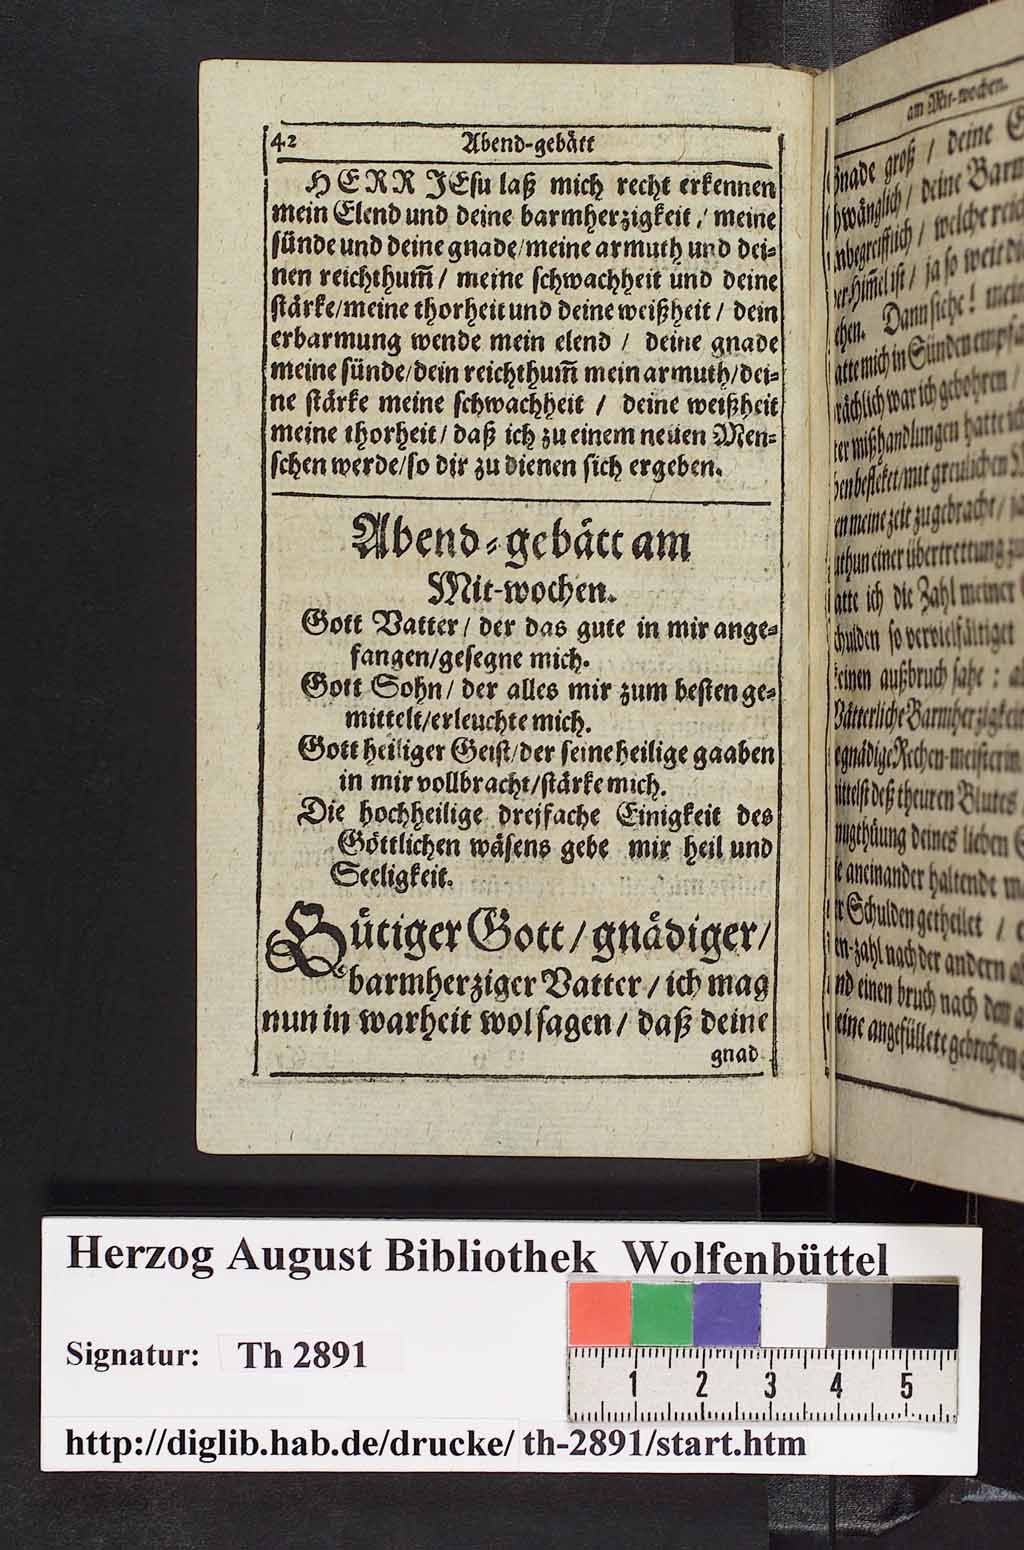 42 Abend-gebätt
HERR JEsu laß mich recht erkennen
mein Elend und deine barmherzigkeit / meine
sünde und deine gnade / meine armuth und dei-
nen reichthum̃ / meine schwachheit und deine
stärke / meine thorheit und deine weißheit / dein
erbarmung wende mein elend / deine gnade
meine sünde / dein reichthum̃ mein armuth / dei-
ne stärke meine schwachheit / deine weißheit
meine thorheit / daß ich zu einem neuen Men-
schen werde / so dir zu dienen sich ergeben.
Abend-gebätt am
Mit-wochen.
Gott Vatter / der das gute in mir ange-
fangen / gesegne mich.
Gott Sohn / der alles mir zum besten ge-
mittelt / erleuchte mich.
Gott heiliger Geist / der seine heilige gaaben
in mir vollbracht / stärke mich.
Die hochheilige dreifache Einigkeit des
Göttlichen wäsens gebe mir heil und
Seeligkeit.
Gütiger Gott / gnädiger /
barmherziger Vatter / ich mag
nun in warheit wol sagen / daß deine
gnad
am Mit-wochen.
gnade groß / deine
/ deine Barm
/ welche reich
ist / ja so weit
Dann siehe! mein
mich in Sünden
war ich gebohren /
mißhandlungen hatte
mit greulichen
meine zeit zugebracht /
einer übertrettung
ich die Zahl meiner
schulden so vervielfältiget
keinen außbruch sahe :
Vätterliche Barmherzigkeit
gnädige Rechen-meisterin
deß theuren Blutes
deines lieben
aneinander haltende
Schulden getheilet /
nach der andern
einen bruch nach den
angefüllete gebrechen
Herzog August Bibliothek Wolfenbüttel
Signatur: Th 2891
1 2 3 4 5
http://diglib.hab.de/drucke/ th-2891/start.htm